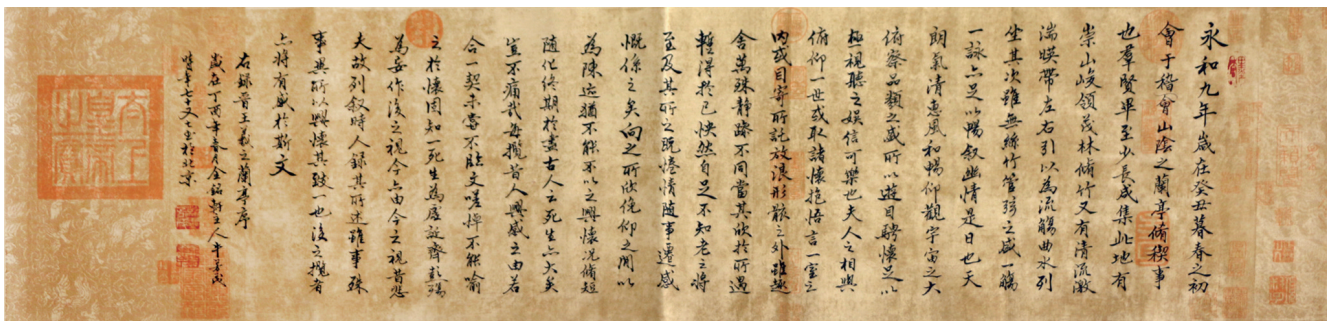 永和九年歲在癸丑暮春之初
會于稽會山蔭之蘭亭脩稧事
也羣賢畢至少長咸集此地有
崇山峻領茂林脩竹又有清流激
湍暎帶左右引以為流觴曲水列
坐其次雖無絲竹管弦之盛一觴
一詠亦足以暢叙幽情是日也天
朗氣清惠風和暢仰觀宇宙之大
俯察品類之盛所以遊目騁懷足以
極視聽之娛信可樂也夫人之相與
俯仰一世或取諸懷抱悟言一室之
內或目寄所託放浪形骸之外雖趣
舍萬殊靜躁不同當其欣於所遇
輕得於己怏然自足不知老之將
至及其所之既惓情隨事遷感
慨係之矣向之所欣俛仰之間以
為陳迹猶不能不以之興懷況脩短
隨化終期於盡古人云死生亦大矣
豈不痛哉每攬昔人興感之由若
合一契未嘗不臨文嗟悼不能喻
之於懷固知一死生為虛誕齊彭殤
為妄作後之視今亦由今之視昔悲
夫故列叙時人録其所述雖事殊
事異所以興懷其致一也後之攬者
亦將有感於斯文
右録晋王羲之蘭亭序
歲在丁丙年春月金
時年七十又二書於北京